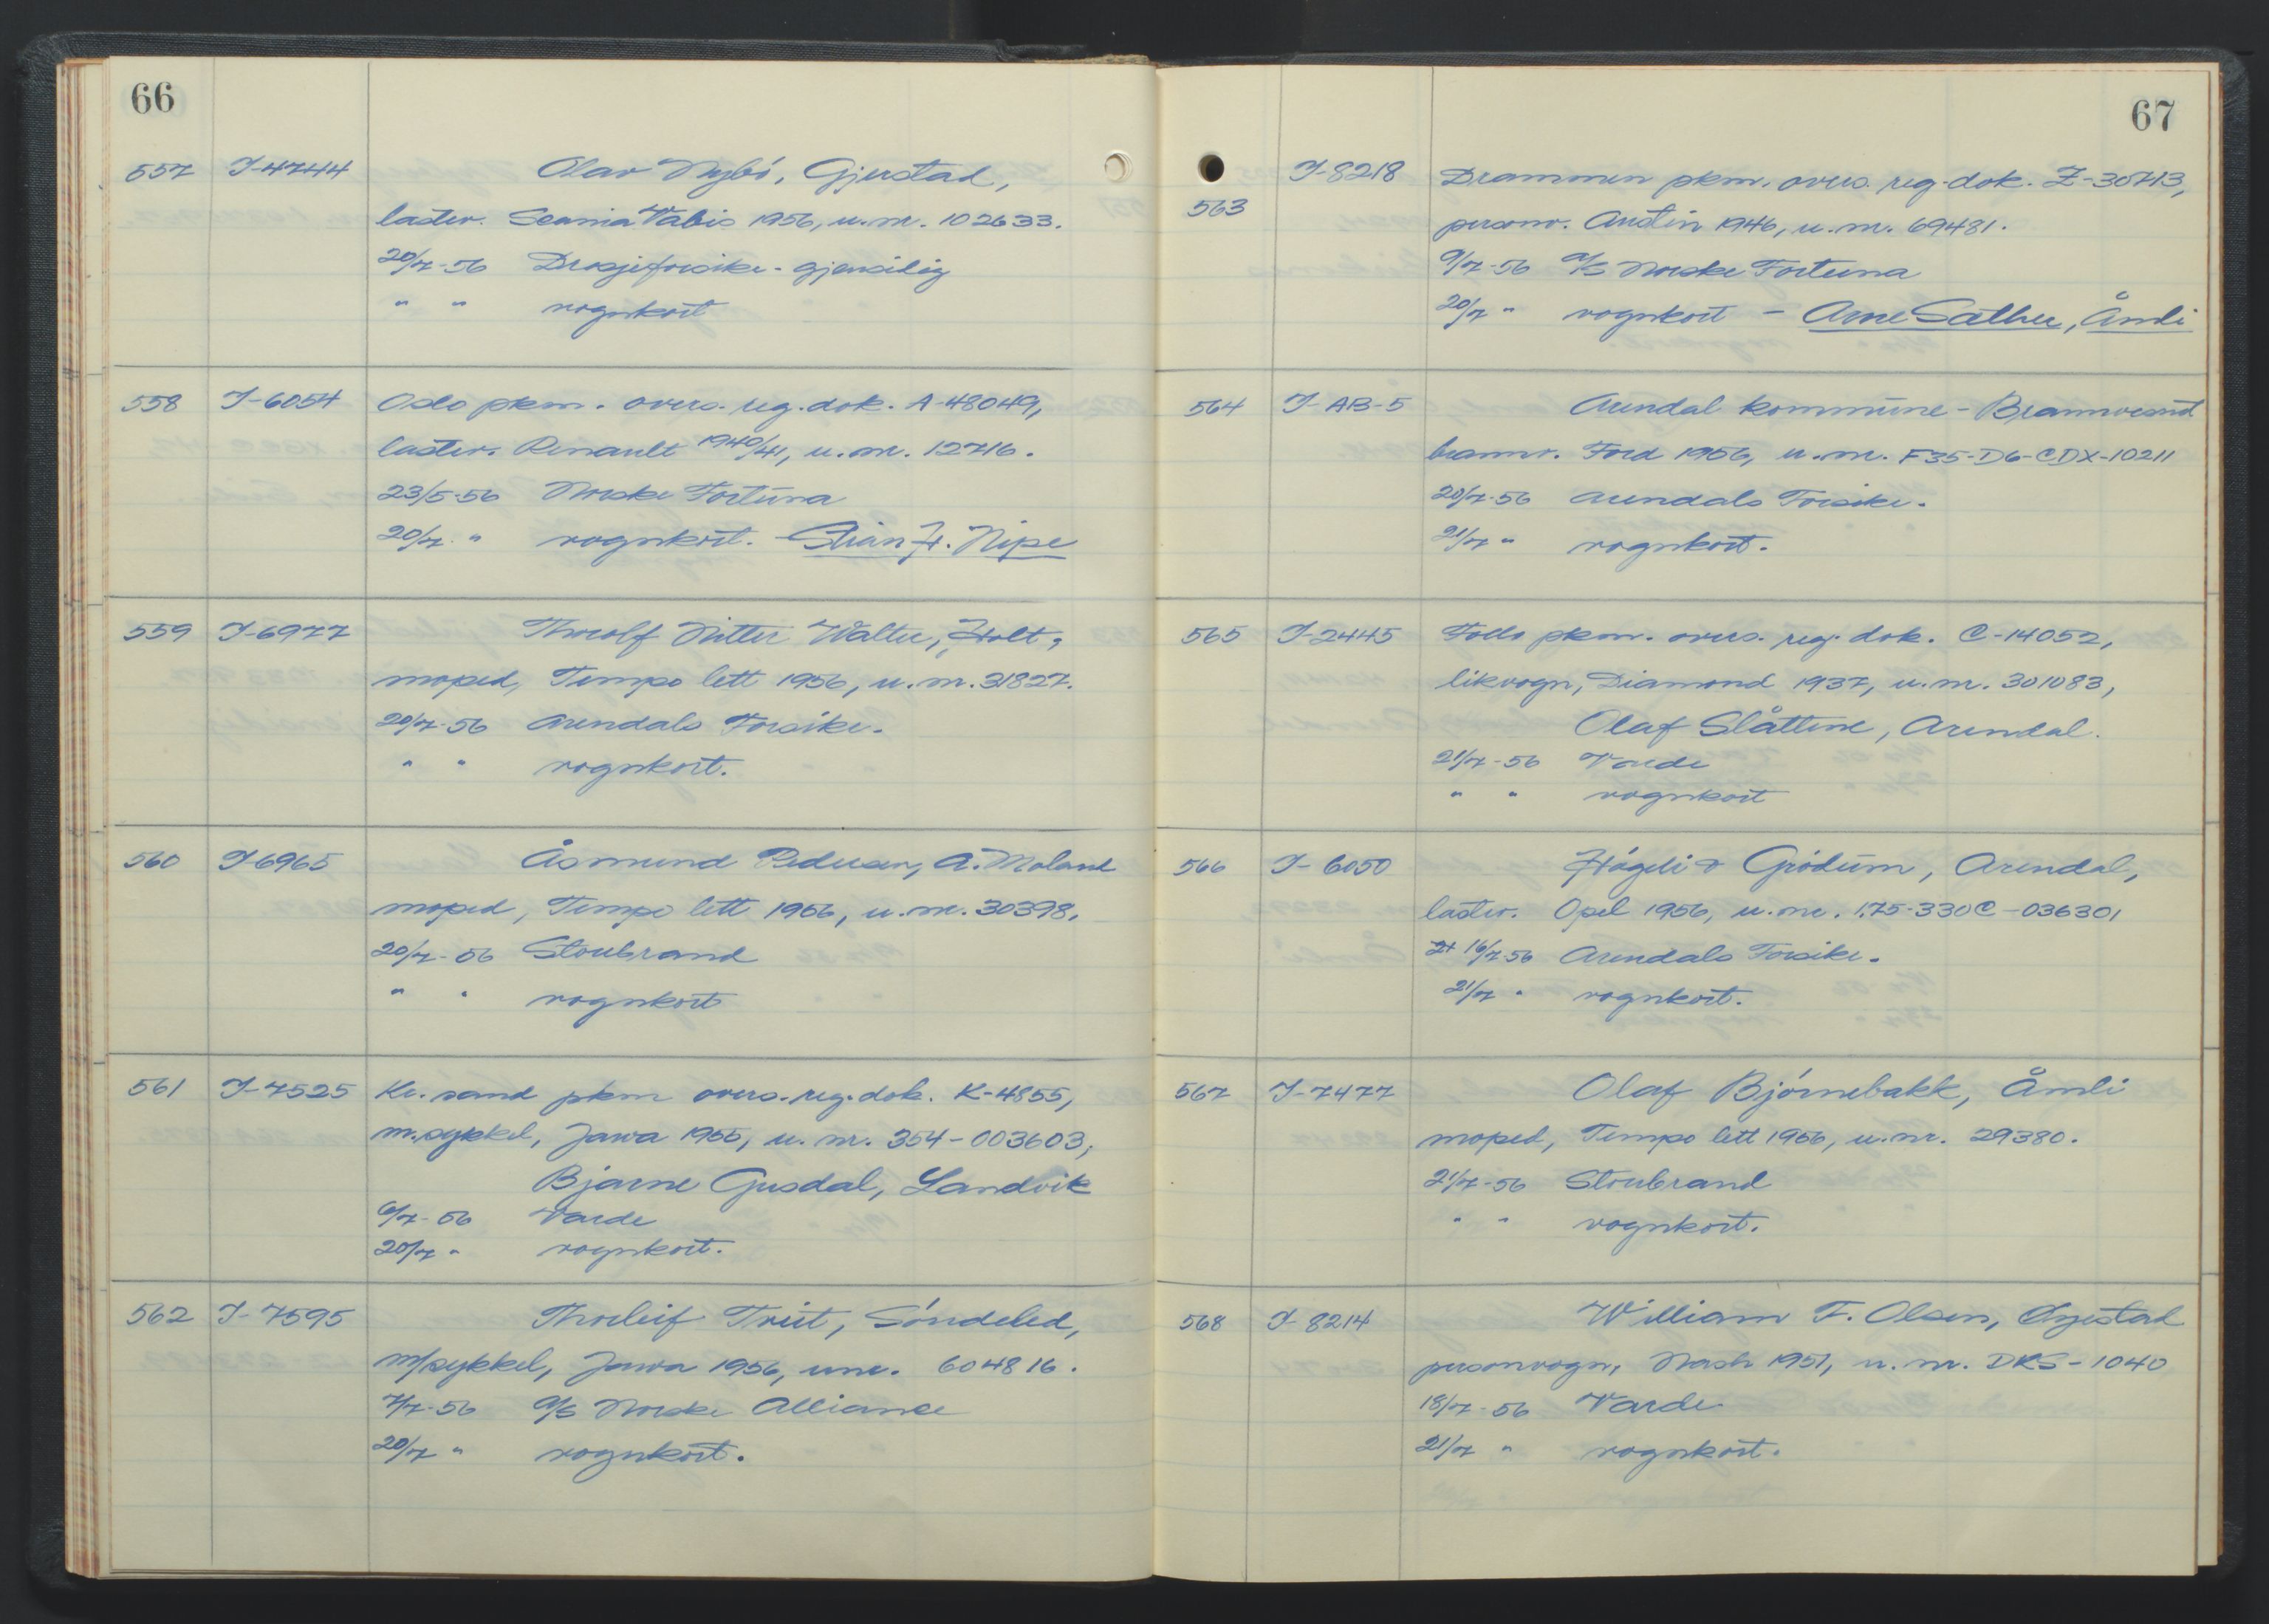 66
557 I-4744 Olav Nybö, Gjerstad,
lastev. Scania Vabis 1956, u.nr. 102633.
20/7-56 Drosjeforsikr.-gjensidig
" " vognkort
558 I-6054 Oslo pkm. overs. reg.dok. A-48049,
lastev. Renault 1940/41, u.nr. 12716.
23/5-56 Norske Fortuna
20/7 " vognkort. - Stian H. Nipe
559 I-6977 Thorolf Nitter Walter, Holt,
moped, Tempo lett 1956, u.nr. 31827.
20/7-56 Arendals Forsikr.
" " vognkort.
560 I-6965 Åsmund Pedersen, A. Moland
moped, Tempo lett 1956, u.nr. 30398.
20/7-56 Storebrand
" " vognkort
561 I-7525 Kr.sand pkm overs. reg.dok. K-4855,
m.sykkel, Jawa 1955, u.nr. 354-003603,
Bjarne Gusdal, Landvik
6/7-56 Varde
20/7 " vognkort.
562 I-7595 Thorleif Trist, Söndeled,
m/sykkel, Jawa 1956, unr. 604816.
7/7-56 A/S Norske Alliance
20/7 " vognkort.
67
563 I-8218 Drammen pkm. overs. reg.dok. Z-30713,
personv. Austin 1946, u.nr. 69481.
9/7-56 A/S Norske Fortuna
20/7 " vognkort - Arne Sæther, Åmli
564 I-AB-5 Arendal kommune - Brannvesnd
brannv. Ford 1956, u.nr. F35-D6-CDX-10211
20/7-56 Arendals Forsikr.
21/7 " vognkort.
565 I-2445 Follo pkm. overs. reg.dok. C-14052,
likvogn, Diamond 1937, u.nr. 301083,
Olaf Slåttene, Arendal.
21/7-56 Varde
" " vognkort
566 I-6050 Högeli & Grödum, Arendal,
lastev. Opel 1956, u.nr. 1,75-330C-036301
16/7-56 Arendals Forsikr.
21/7 " vognkort.
567 I-7477 Olaf Bjørnebakk, Åmli
moped, Tempo lett 1956, u.nr. 29380.
21/7-56 Storebrand
" " vognkort.
568 I-8214 William F. Olsen, Øyestad
personvogn, Nash 1951, u.nr. DKS-1040
18/7-56 Varde
21/7 " vognkort.